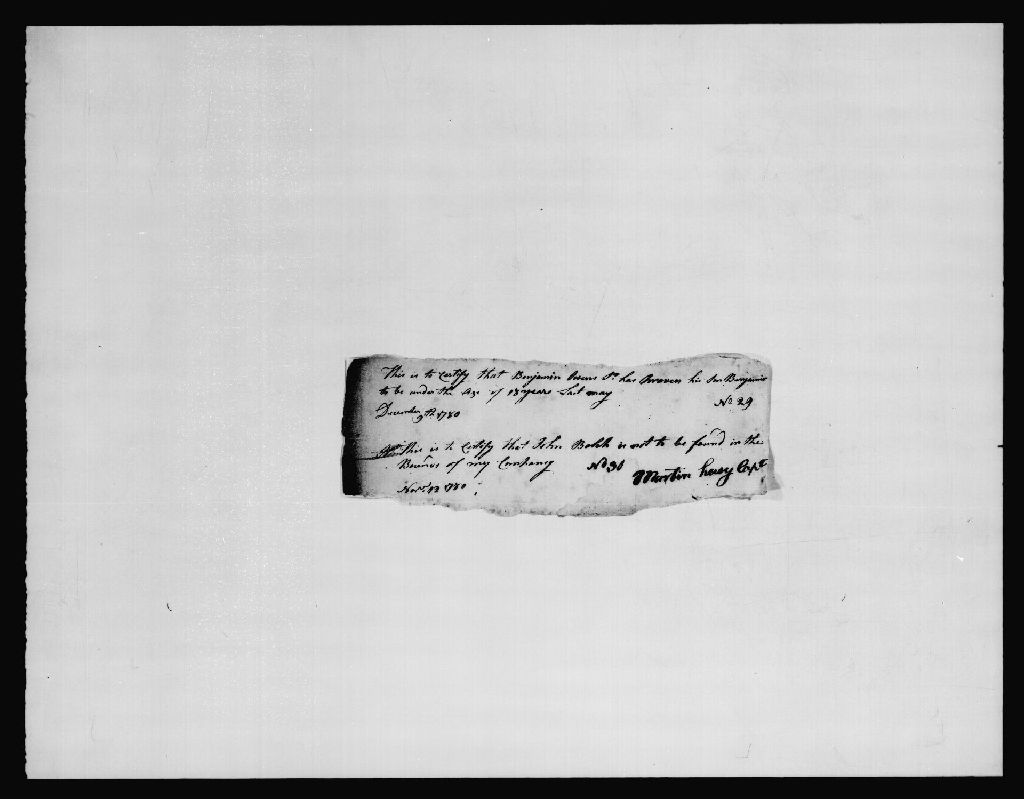 This is to Certify that Benjamin Owens Sr. has Proven his Son Benjamin
to be under the Age of 18 years Last may
No 29
December 9th 1780
This is to Certify that John is not to be found in the
Bounds of my Company No 30
Martin Capt
Novr 13 1780